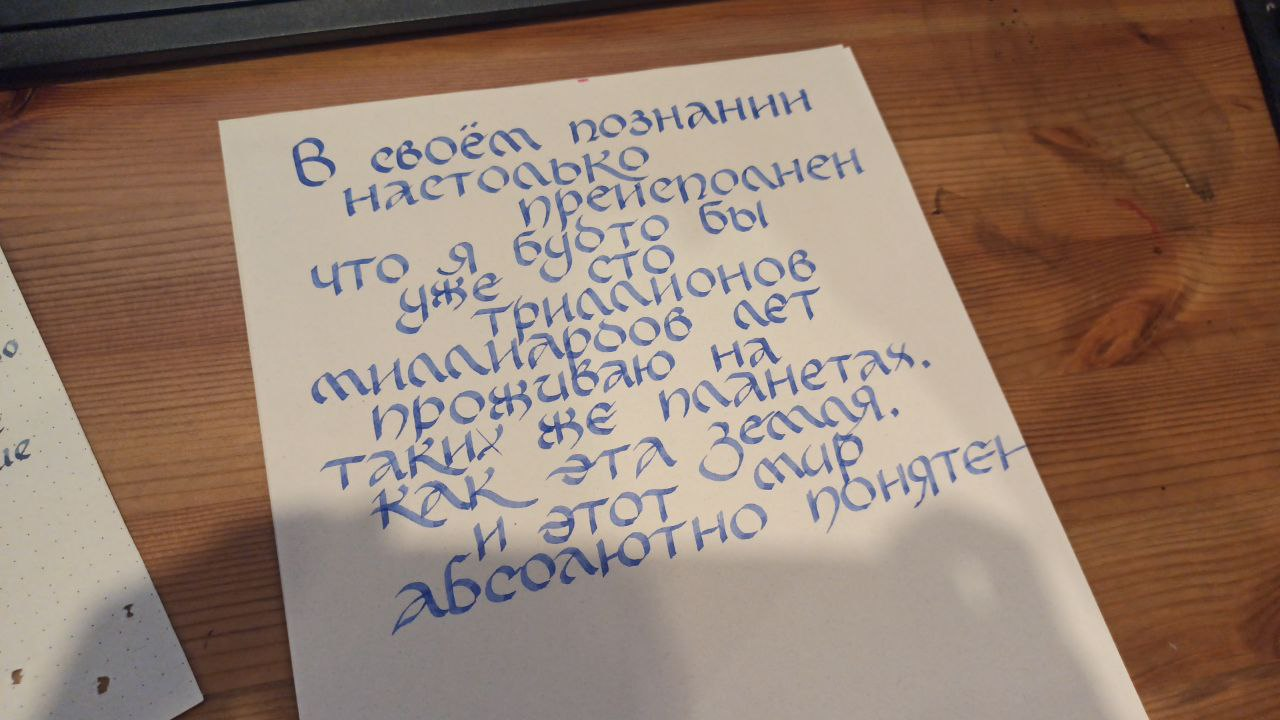 В своём познании
настолько
преисполнен
что я будто бы
уже сто
триллионов
миллиардов лет
проживаю на
таких же планетах.
как эта Земля.
и этот мир
абсолютно понятен